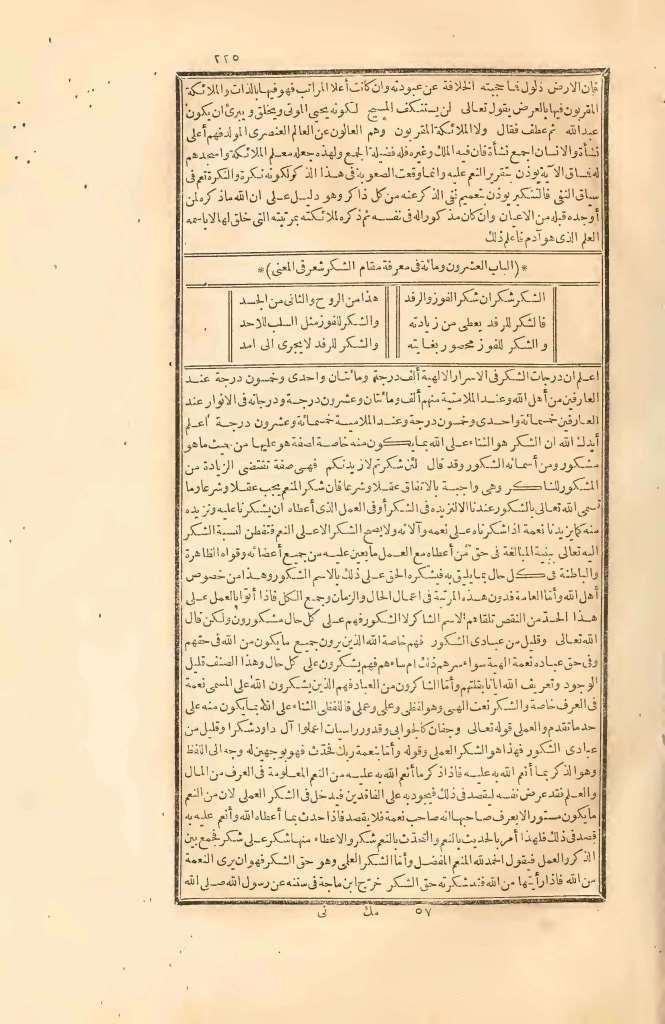 ٢٢٥
فان الارض ذلول فما حجبته الخلافة عن عبودته وان كانت أعلا المراتب فهو فيها بالذات والملائكة
المقربون فيها بالعرض يقول تعالى لن يستنكف المسيح لكونه يحيى الموتى ويخلق ويبرئ ان يكون
عبد الله ثم عطف فقال ولا الملائكة المقربون وهم العالون عن العالم العنصرى المولد فهم أعلى
نشأة والانسان اجمع نشأة فان فيه الملك وغيره فله فضيلة الجمع ولهذا جعله معلم الملائكة واسجدهم
له فساق الآية يوذن بتقرير النعم عليه وانما وقعت الصعوبة فى هذا الذكر لكونه نكرة والنكرة تعم فى
سياق النفى فالتنكير يوذن بتعميم نفى الذكر عنه من كل ذاكر وهو دليل على ان الله ما ذكره لمن
أوجده قبله من الاعيان وان كان مذكورا له فى نفسه ثم ذكره لملائكته بمرتبته التى خلق لها لا باسمه
العلم الذى هو آدم فاعلم ذلك
*(الباب العشرون ومائة فى معرفة مقام الشكر شعر فى المعنى)*
الشكر شكران شكر الفوز والرفد هذا من الروح والثانى من الجسد
فالشكر للرفد يعطى من زيادته والشكر للفوز مثل السلب للاحد
والشكر للفوز محصور بغايته والشكر للرفد لا يجرى الى امد
اعلم ان درجات الشكر فى الاسرار الالهية ألف درجة ومائتان واحدى وخمسون درجة عند
العارفين من أهل الله وعند الملامتية منهم ألف ومائتان وعشرون درجة ودرجاته فى الانوار عند
العارفين خمسمائة واحدى وخمسون درجة وعند الملامية خمسمائة وعشرون درجة اعلم
أيدك الله ان الشكر هو الثناء على الله بما يكون منه خاصة لصفة هو عليها من حيث ما هو
مشكور ومن أسمائه الشكور وقد قال لئن شكرتم لازيدنكم فهى صفة تقتضى الزيادة من
المشكور للشاكر وهى واجبة بالاتفاق عقلا وشرعا فان شكر المنعم يجب عقلا وشرعا وما
تسمى الله تعالى بالشكور عندنا الا لنزيده فى الشكر أو فى العمل الذى أعطاه ان يشكرنا عليه ونزيده
منه كما يزيدنا نعمة اذا شكرناه على نعمه وآلائه ولا يصح الشكر الا على النعم فتفطن لنسبة الشكر
اليه تعالى ببنية المبالغة فى حق من أعطاه مع العمل ما يعين عليه من جميع أعضائه وقواه الظاهرة
والباطنة فى كل حال بما يليق به فيشكره الحق على ذلك بالاسم الشكور وهذا من خصوص
أهل الله وأما العامة فدون هذه المرتبة فى اعمال الحال والزمان وجميع الكل فاذا أتوا بالعمل على
هذا الحد من النقص تلقاهم الاسم الشاكر لا الشكور فهم على كل حال مشكورون ولكن قال
الله تعالى وقليل من عبادى الشكور فهم خاصة الله الذين يرون جميع ما يكون من الله فى حقهم
وفى حق عباده نعمة الهية سواء سرهم ذلك ام ساءهم فهم يشكرون على كل حال وهذا الصنف قليل
الوجود وتعريف الله ايانا بقلتهم وأما الشاكرون من العباد فهم الذين يشكرون الله على المسمى نعمة
فى العرف خاصة والشكر نعت الهى وهو لفظى وعلمى وعملى فاللفظى الثناء على الله بما يكون منه على
حد ما تقدم والعملى قوله تعالى وجفان كالجوابى وقدور راسيات اعملوا آل داود شكرا وقليل من
عبادى الشكور فهذا هو الشكر العملى وقوله وأما بنعمة ربك فحدث فهو بوجهين له وجه الى اللفظ
وهو الذكر بما أنعم الله به عليه فاذا ذكر ما أنعم الله به عليه من النعم المعلومة فى العرف من المال
والعلم فقد عرض نفسه ليقصد فى ذلك فيجود به على القاصدين فيدخل فى الشكر العملى لان من النعم
ما يكون مستورا لا يعرف صاحبها انه صاحب نعمة فلا يقصد فاذا حدث بما أعطاه الله وأنعم عليه به
قصد فى ذلك فلهذا أمر بالحديث بالنعم والتحدث بالنعم شكر والاعطاء منها شكر على شكر فجمع بين
الذكر والعمل فيقول الحمد لله المنعم المفضل وأما الشكر العلمى وهو حق الشكر فهو ان يرى النعمة
من الله فاذا رأيتها من الله فقد شكرته حق الشكر خرّج ابن ماجة فى سننه عن رسول الله صلى الله
٥٧ مك نى